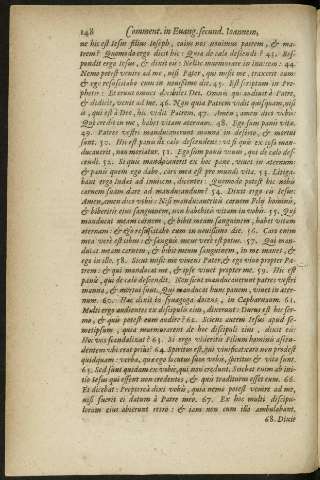 148 Comment. in Euang. secund. Ioannem,
ne hic est Iesus filius Ioseph, cuius nos nouimus patrem, & ma-
trem? Quomodo ergo dicit hic: Quia de cælo descendi? 43. Respondit
ergo Iesus, & dixit eis: Nolite murmurare in inuicem: 44.
Nemo potest venire ad me, nisi Pater, qui misit me, traxerit eum:
& ego resuscitabo eum in nouissimo die. 45. Est scriptum in Pro-
phetis: Et erunt omnes docibiles Dei. Omnis qui audiuit à Patre,
& didicit, venit ad me. 46. Non quia Patrem vidit quisquam, nisi
is, qui est à Deo, hic vidit Patrem. 47. Amen, amen dico vobis:
Qui credit in me, habet vitam æternam. 48. Ego sum panis vitæ.
49. Patres vestri manducauerunt manna in deserto, & mortui
sunt. 50. Hic est panis de cælo descendens: vt si quis ex ipso man-
ducauerit, non moriatur. 51. Ego sum panis viuus, qui de cælo des-
cendi. 52. Si quis manducauerit ex hoc pane, viuet in æternum:
& panis quem ego dabo, caro mea est pro mundi vita. 53. Litiga-
bant ergo Iudæi ad inuicem, dicentes: Quomodo potest hic nobis
carnem suam dare ad manducandum? 54. Dixit ergo eis Iesus:
Amen, amen dico vobis: Nisi manducaueritis carnem Filij hominis,
& biberitis eius sanguinem, non habebitis vitam in vobis. 55. Qui
manducat meam carnem, & bibit meum sanguinem, habet vitam
æternam: & ego resuscitabo eum in nouissimo die. 56. Caro enim
mea verè est cibus: & sanguis meus verè est potus. 57. Qui man-
ducat meam carnem, & bibit meum sanguinem, in me manet, &
ego in illo. 58. Sicut misit me viuens Pater, & ego viuo propter Pa-
trem: & qui manducat me, & ipse viuet propter me. 59. Hic est
panis, qui de cælo descendit. Non sicut manducauerunt patres vestri
manna, & mortui sunt. Qui manducat hunc panem, viuet in æter-
num. 60. Hæc dixit in synagoga docens, in Capharnaum. 61.
Multi ergo audientes ex discipulis eius, dixerunt: Durus est hic ser-
mo, & quis potest eum audire? 62. Sciens autem Iesus apud se-
metipsum, quia murmurarent de hoc discipuli eius, dixit eis:
Hoc vos scandalizat? 63. Si ergo videritis Filium hominis ascen-
dentem vbi erat prius? 64. Spiritus est, qui viuificat: caro non prodest
quidquam: verba, quæ ego locutus sum vobis, spiritus & vita sunt.
65. Sed sunt quidam ex vobis, qui non credunt. Sciebat enim ab ini-
tio Iesus qui essent non credentes, & quis traditurus esset eum. 66.
Et dicebat: Propterea dixi vobis, quia nemo potest venire ad me,
nisi fuerit ei datum à Patre meo. 67. Ex hoc multi discipu-
lorum eius abierunt retro: & iam non cum illo ambulabant.
68. Dixit